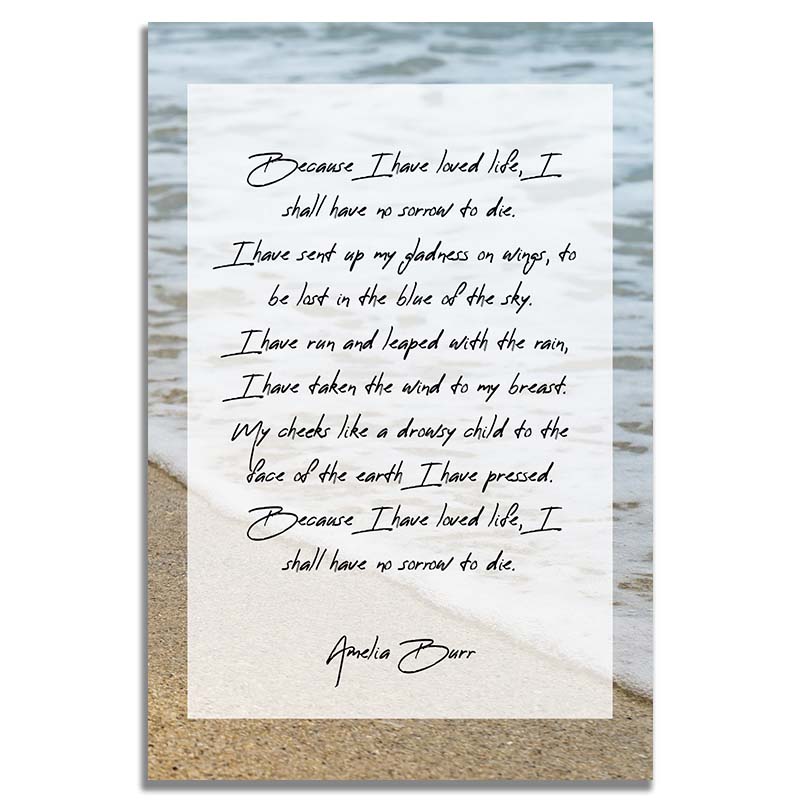 Because I have loved life, I
shall have no sorrow to die.
I have sent up my gladness on wings, to
be lost in the blue of the sky.
I have run and leaped with the rain,
I have taken the wind to my breast.
My cheeks like a drowsy child to the
face of the earth I have pressed.
Because I have loved life, I
shall have no sorrow to die.
Amelia Burr